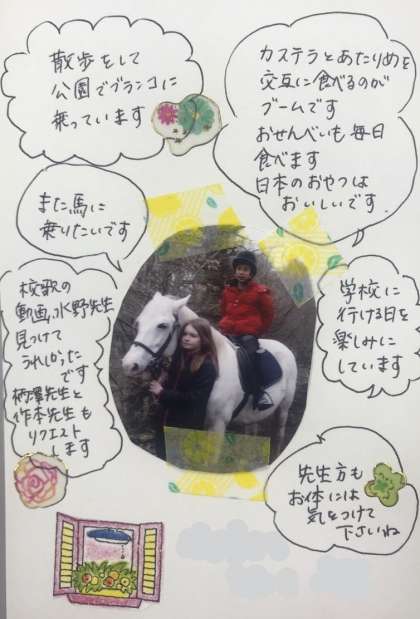 散歩をして
公園でブランコに
乗っています
カステラとあたりめを
交互に食べるのが
ブームです
おせんべいも毎日
食べます
日本のおやつは
おいしいです
また馬に
乗りたいです
校歌の
動画、水野先生
見つけて
うれしかった
です
柄澤先生と
作本先生も
リクエスト
します
学校に
行ける日を
楽しみに
しています
先生方も
お体には
気をつけて
下さいね